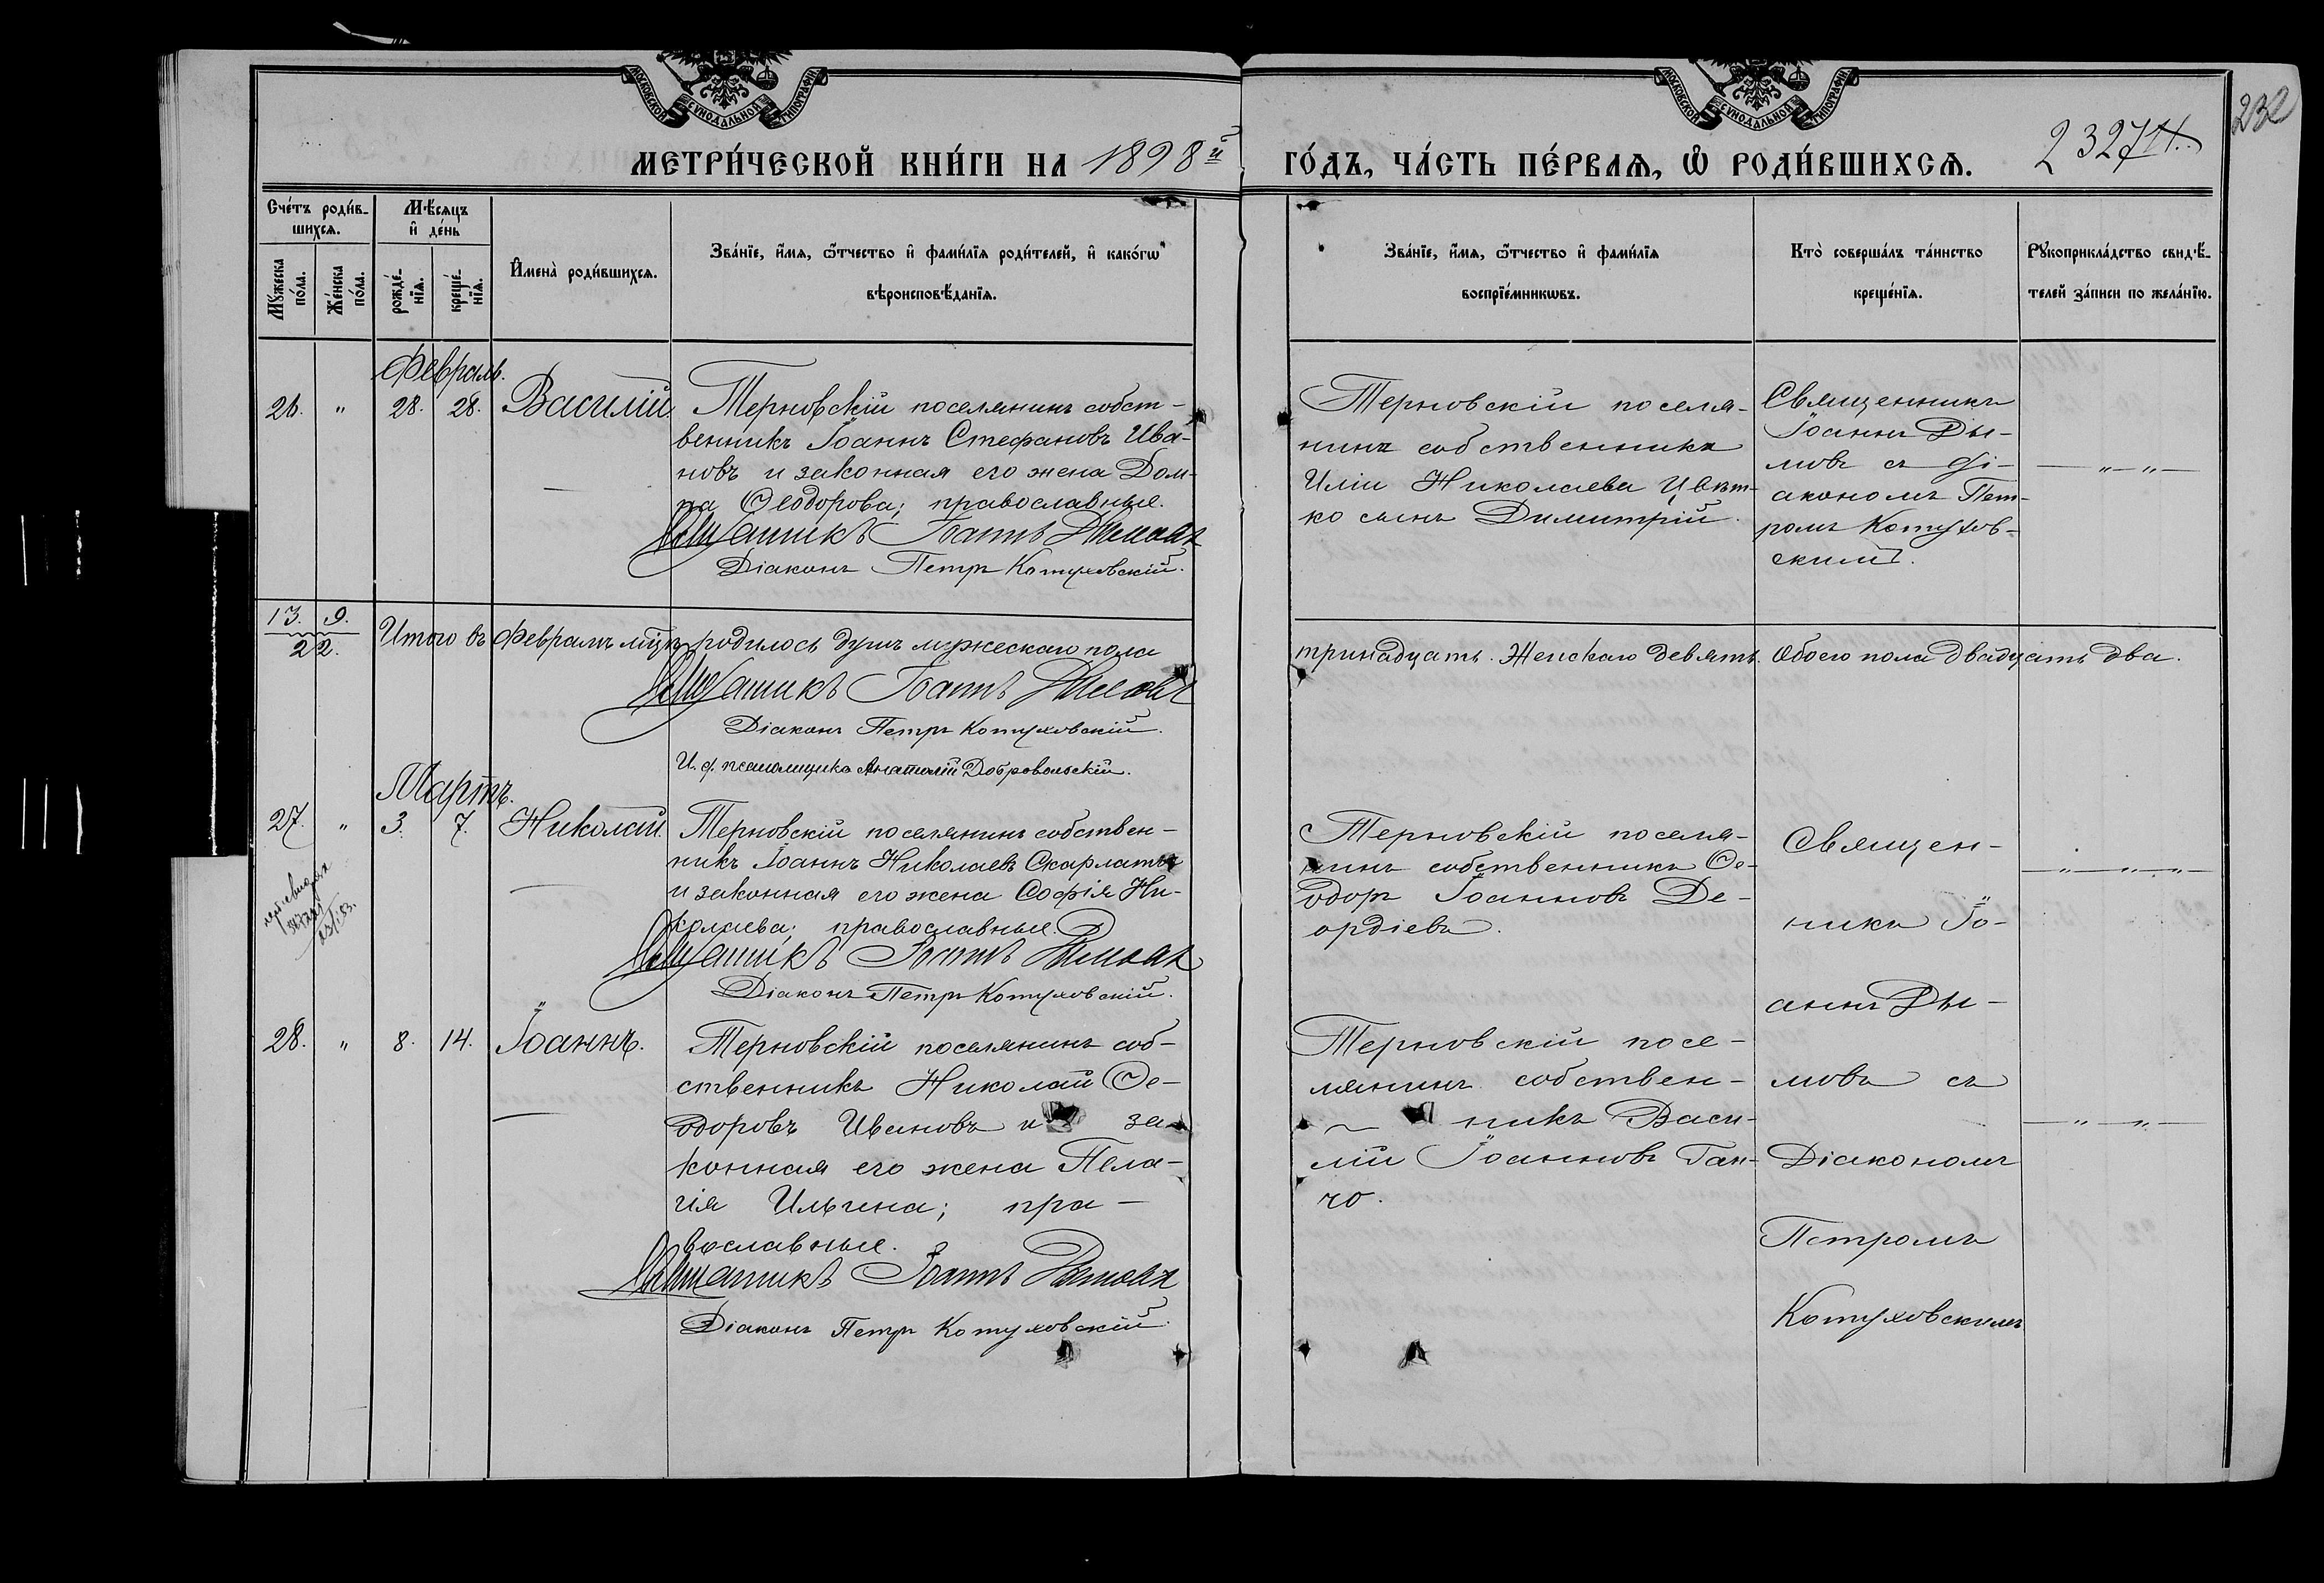 МОСКОВСКОЙ СѴНОДАЛЬНОЙ ТИПОГРАФІИ
МОСКОВСКОЙ СѴНОДАЛЬНОЙ ТИПОГРАФІИ
232
МЕТРИ́ЧЕСКОЙ КНИ́ГИ НА 1898й
ГО́ДЪ, ЧА́СТЬ ПЕ́РВАѦ, Ѡ҆ РОДИ́ВШИХСѦ.
Сче́тъ роди́в-
шихсѧ.
Мѣ́сѧцъ
и҆ де́нь
Мꙋ́жеска
по́ла.
Же́нска
по́ла.
рожде́-
нїѧ.
креще́-
нїѧ.
И҆мена̀ роди́вшихсѧ.
Зва́нїе, и҆́мѧ, ѻ҆́тчество и҆ фами́лїѧ роди́телей, и҆ како́гѡ
вѣроисповѣ́данїѧ.
Зва́нїе, и҆́мѧ, ѻ҆́тчество и҆ фами́лїѧ
воспрїе́мникѡвъ.
Кто̀ соверша́лъ та́инство
креще́нїѧ.
Рꙋкоприкла́дство свидѣ́-
телей за́писи по жела́нїю.
Февраль.
26. " 28. 28. Василій.
Терновскій поселянинъ собст-
венникъ Іоаннъ Стефановъ Ива-
новъ и законная его жена Дом-
на Ѳеодорова; православные.
Священникъ Іоаннъ Дымовъ
Діаконъ Петръ Котуховскій.
Терновскій поселя-
нинъ собственника
Иліи Николаева Цвѣт-
ко сынъ Димитрій.
Священникъ
Іоаннъ Ды-
мовъ съ Ді-
акономъ Пет-
ромъ Котухов-
скимъ.
— " — " —
13. 9.
22.
Итого въ Февралѣ мцѣ родилось душъ мужескаго пола
тринадцать. Женскаго девять. Обоего пола двадцать два.
Священникъ Іоаннъ Дымовъ
Діаконъ Петръ Котуховскій.
И. д. псаломщика Анатолій Добровольскій.
Мартъ.
27. " 3. 7. Николай.
Терновскій поселянинъ собствен-
никъ Іоаннъ Николаевъ Скарлатъ
и законная его жена Софія Ни-
колаева; православные.
Священникъ Іоаннъ Дымовъ
Діаконъ Петръ Котуховскій.
Терновскій поселя-
нинъ собственникъ Ѳе-
одоръ Іоанновъ Де-
ордіевъ.
Священ-
никъ Іо-
аннъ Ды-
мовъ съ
Діакономъ
Петромъ
Котуховскимъ
— " — " — " —
28. " 8. 14. Іоаннъ.
Терновскій поселянинъ соб-
ственникъ Николай Ѳе-
одоровъ Ивановъ и за-
конная его жена Пела-
гія Ильина; пра-
вославные.
Священникъ Іоаннъ Дымовъ
Діаконъ Петръ Котуховскій.
Терновскій посе-
лянинъ собствен-
никъ Васи-
лій Іоанновъ Ган-
чо.
— " — " —